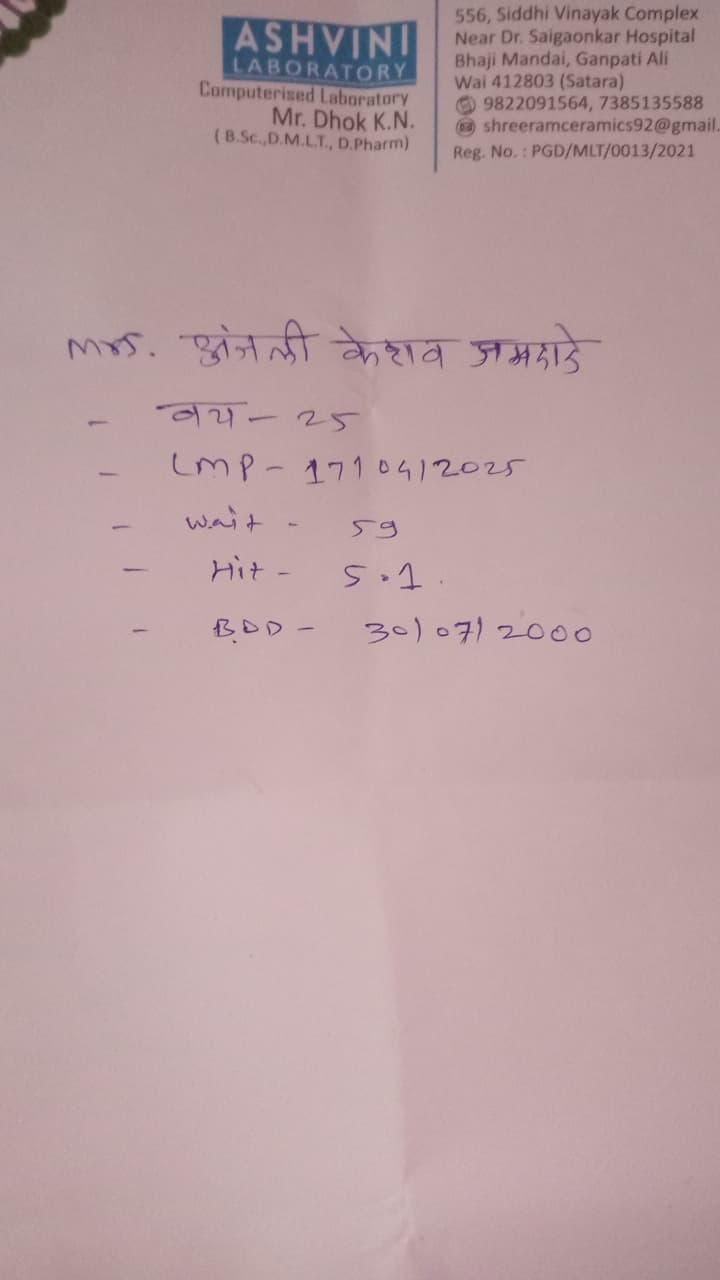 ASHVINI
LABORATORY
Computerised Laboratory
Mr. Dhok K.N.
( B.Sc.,D.M.L.T., D.Pharm)
556, Siddhi Vinayak Complex
Near Dr. Saigaonkar Hospital
Bhaji Mandai, Ganpati Ali
Wai 412803 (Satara)
9822091564, 7385135588
shreeramceramics92@gmail.
Reg. No. : PGD/MLT/0013/2021
Mrs. अंजली केशव जमदाडे
- वय - 25
- LMP - 17/04/2025
- wait - 59
- Hit - 5.1
- B.DD - 30/07/2000